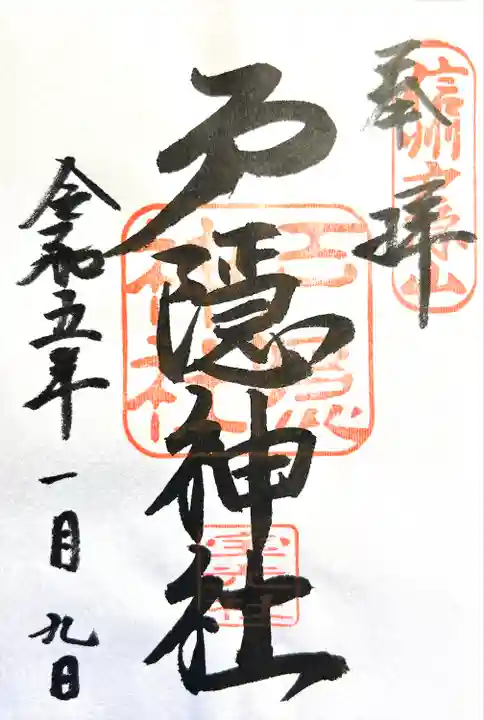 奉拝
信州戸隠山
戸隠神社
戸隠神社
令和五年 一月 九日